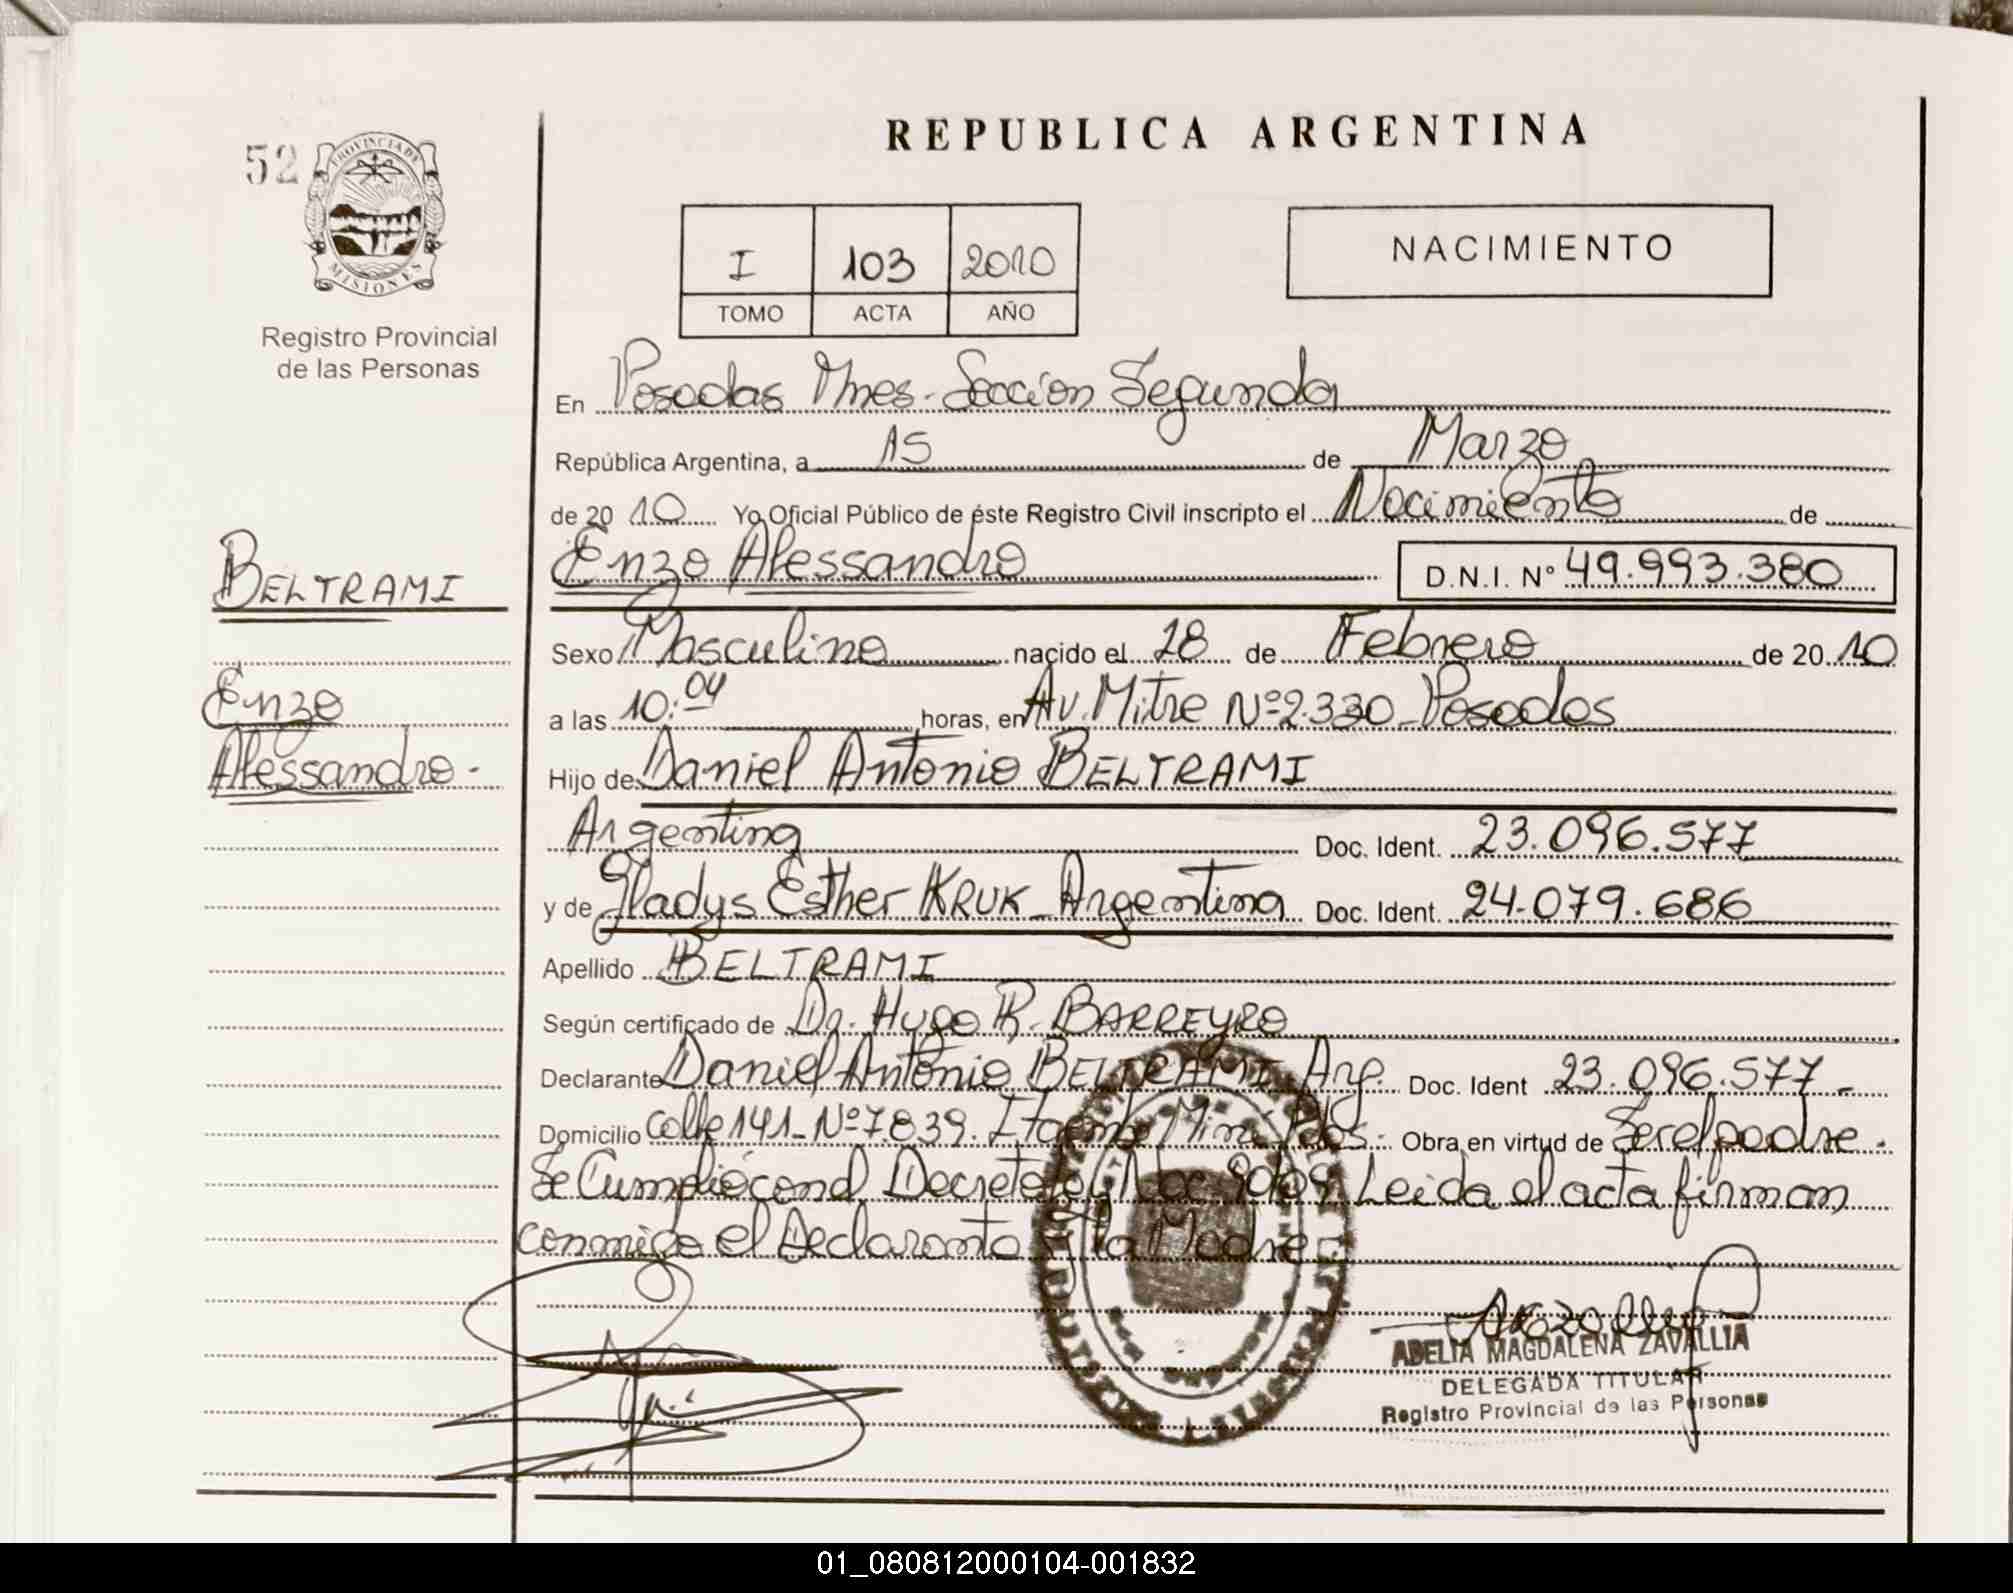 REPUBLICA ARGENTINA
52
PROVINCIA DE
MISIONES
Registro Provincial
de las Personas
I 103 2010
TOMO ACTA AÑO
NACIMIENTO
En Posadas Mnes. Sección Segunda
República Argentina, a 15 de Marzo
de 2010 Yo Oficial Público de éste Registro Civil inscripto el Nacimiento de
Enzo Alessandro D.N.I. Nº 49.993.380
BELTRAMI
Enzo
Alessandro.-
Sexo Masculino nacido el 28 de Febrero de 2010
a las 10:04 horas, en Av. Mitre Nº 2.330 Posadas
Hijo de Daniel Antonio BELTRAMI
Argentina Doc. Ident. 23.096.577
y de Gladys Esther KRUK - Argentina Doc. Ident. 24.079.686
Apellido BELTRAMI
Según certificado de Dr. Hugo R. BARREYRO
Declarante Daniel Antonio BELTRAMI Arg. Doc. Ident 23.096.577-
Domicilio calle 141 - Nº 7839. Itaembé Miní Pdas.- Obra en virtud de Ser el padre.-
Se Cumplió con el Decreto Leída el acta firman
conmigo el Declarante y la Madre.-
ADELIA MAGDALENA ZAVALLIA
DELEGADA TITULAR
Registro Provincial de las Personas
01_080812000104-001832